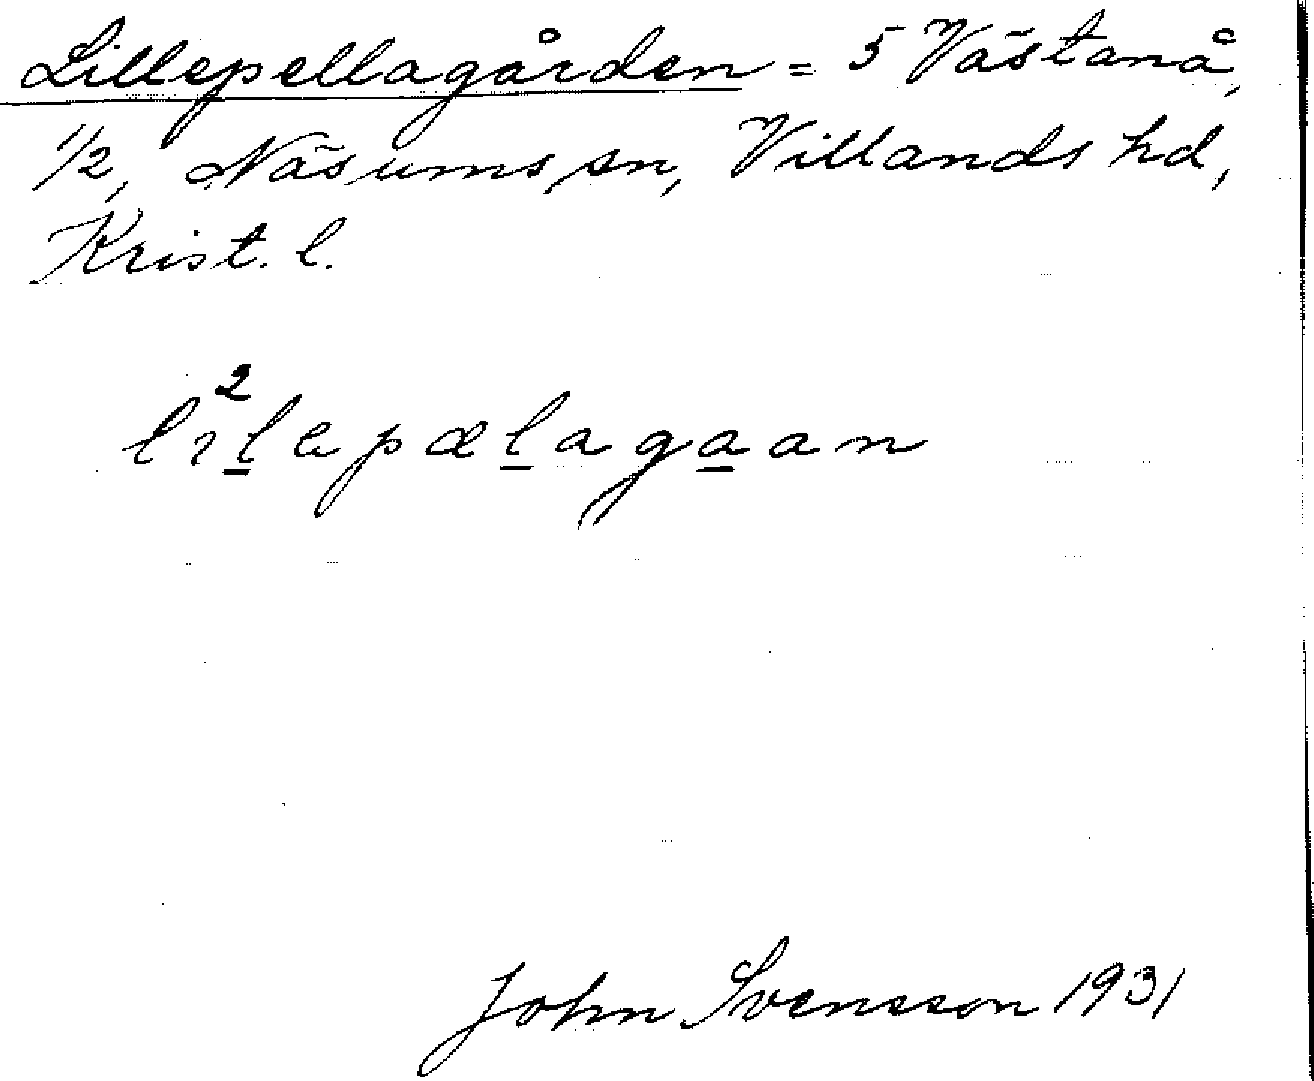 Lillepellagården = 5 Västanå,
1/2, Näsums sn, Villands hd,
Krist. l.
li²lepælagaan
John Svensson 1931